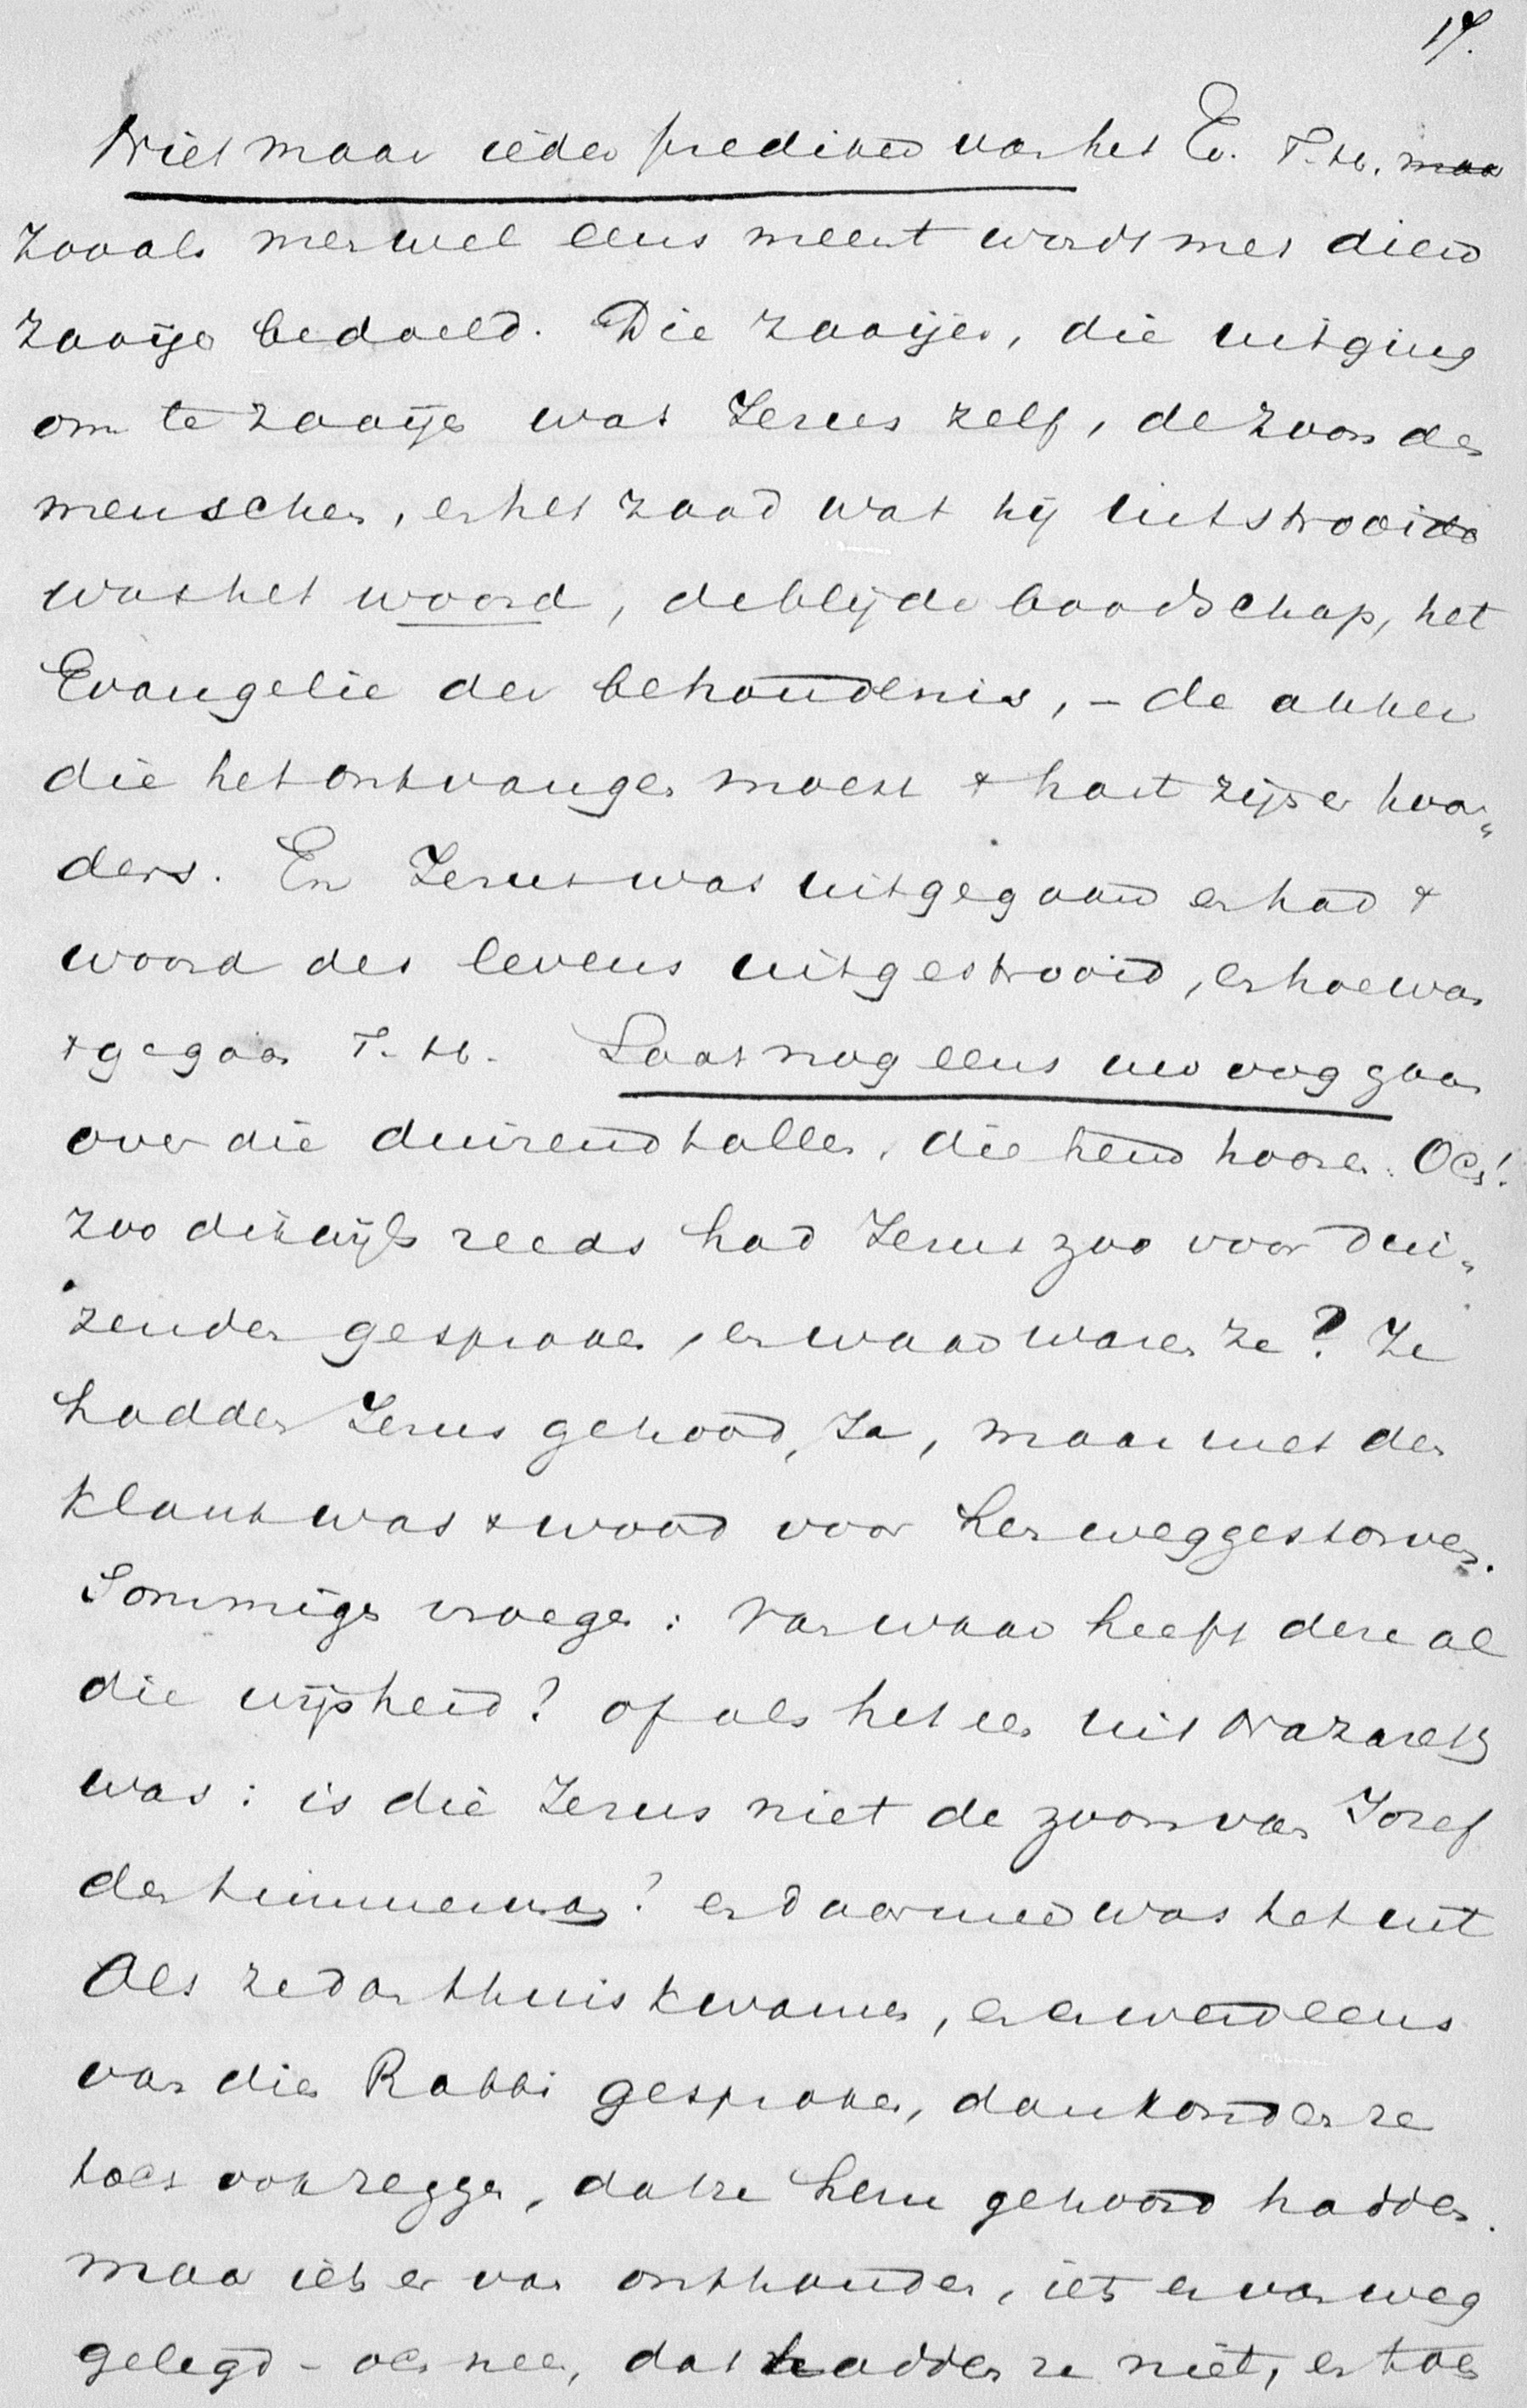 17.
Niet maar ieder prediker van het Ev. T. H. maar
zooals men wel eens meent wordt met dien
zaaijer bedoeld. Die zaaijer, die uitging
om te zaaijen was Jezus zelf, de zoon des
menschen, en het zaad wat hij uitstrooide
was het woord, de blijde boodschap, het
Evangelie der behoudenis, – de akker
die het ontvangen moest + hart zijner hoor„
ders. En Jezus was uitgegaan en had +
woord des levens uitgestrooid, en hoe was
+ gegaan T. H. Laat nog eens uw oog gaan
over die duizendtallen, die hem hooren. Och!
zoo dikwijls reeds had Jezus zoo voor dui„
zenden gesproken, en waar waren ze? Ze
hadden Jezus gehoord, Ja, maar met den
klank was + woord voor hen weggestorven.
Sommigen vroegen: Van waar heeft deze al
die wijsheid? of als het in uit Nazareth
was: is die Jezus niet de zoon van Jozef
den timmerman? en daarmee was het uit
Als ze dan thuis kwamen, en er werd eens
van dien Rabbi gesproken, dan konden ze
toch ook zeggen, dat ze hem gehoord hadden.
maar iets er van onthouden, iets er van weg
gelegd – och nee, dat hadden ze niet, en toch